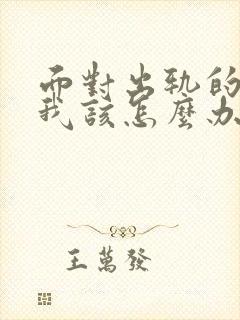 而對出軌的
我該怎麼办
王萬發